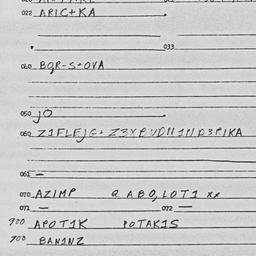 022 APIC+KA
033
040 BQR-S+OVA
050 jO
060 Z1FLEJG+Z3XPVDN1ND3PIKA
061 —
070 AZIMP @ ABO,LOT1 xx
071 — 072 —
900 APOT1K POTAK1S
900 BAN1NZ